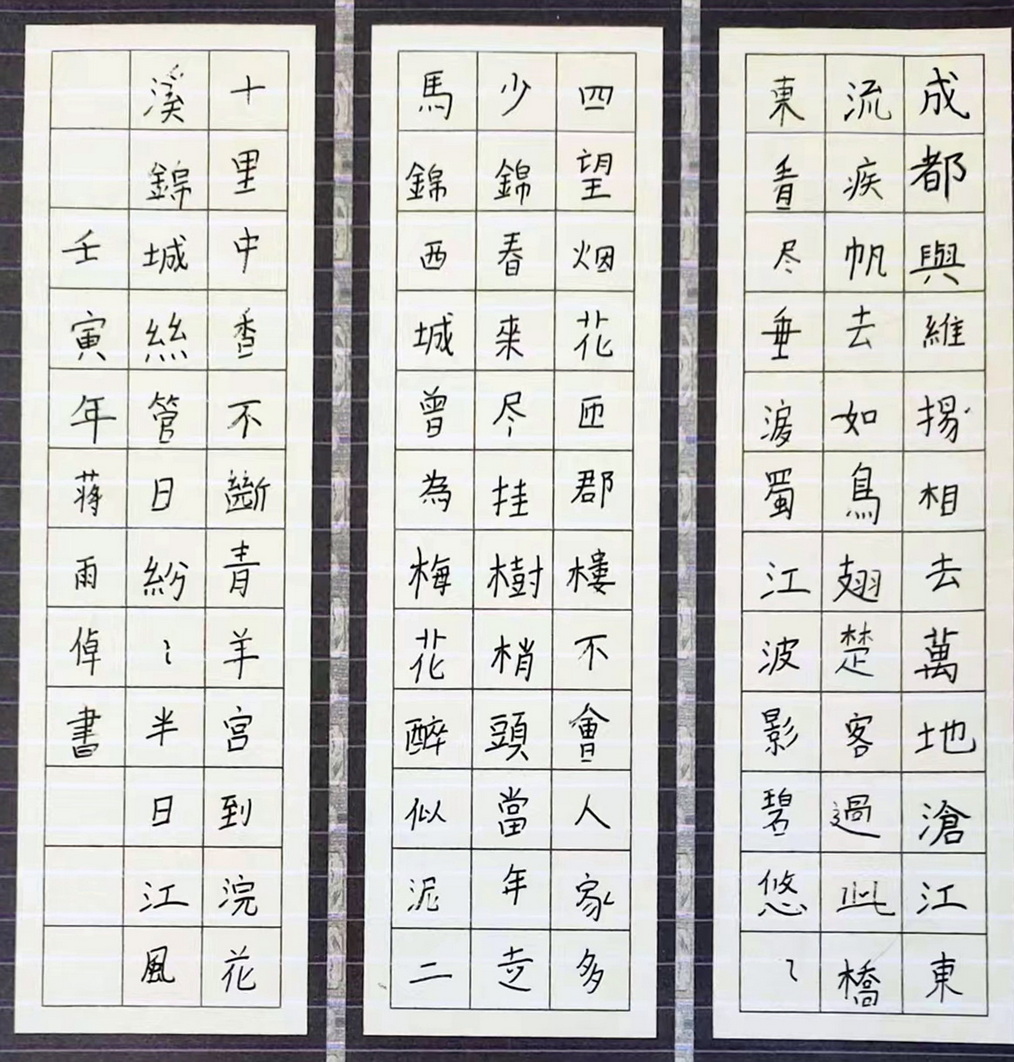 成都與維揚相去萬地滄江東
流疾帆去如鳥翅楚客過此橋
東看尽垂淚蜀江波影碧悠〻
四望烟花匝郡樓不會人家多
少錦春來尽挂樹梢頭當年走
馬錦西城曾為梅花醉似泥二
十里中香不斷青羊宮到浣花
溪錦城絲管日紛〻半日江風
壬寅年蔣雨倬書